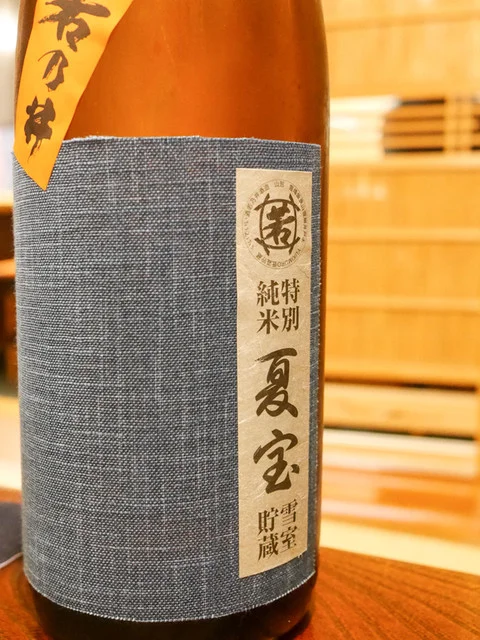 若乃井
若
特別
純米
夏宝
雪室
貯蔵